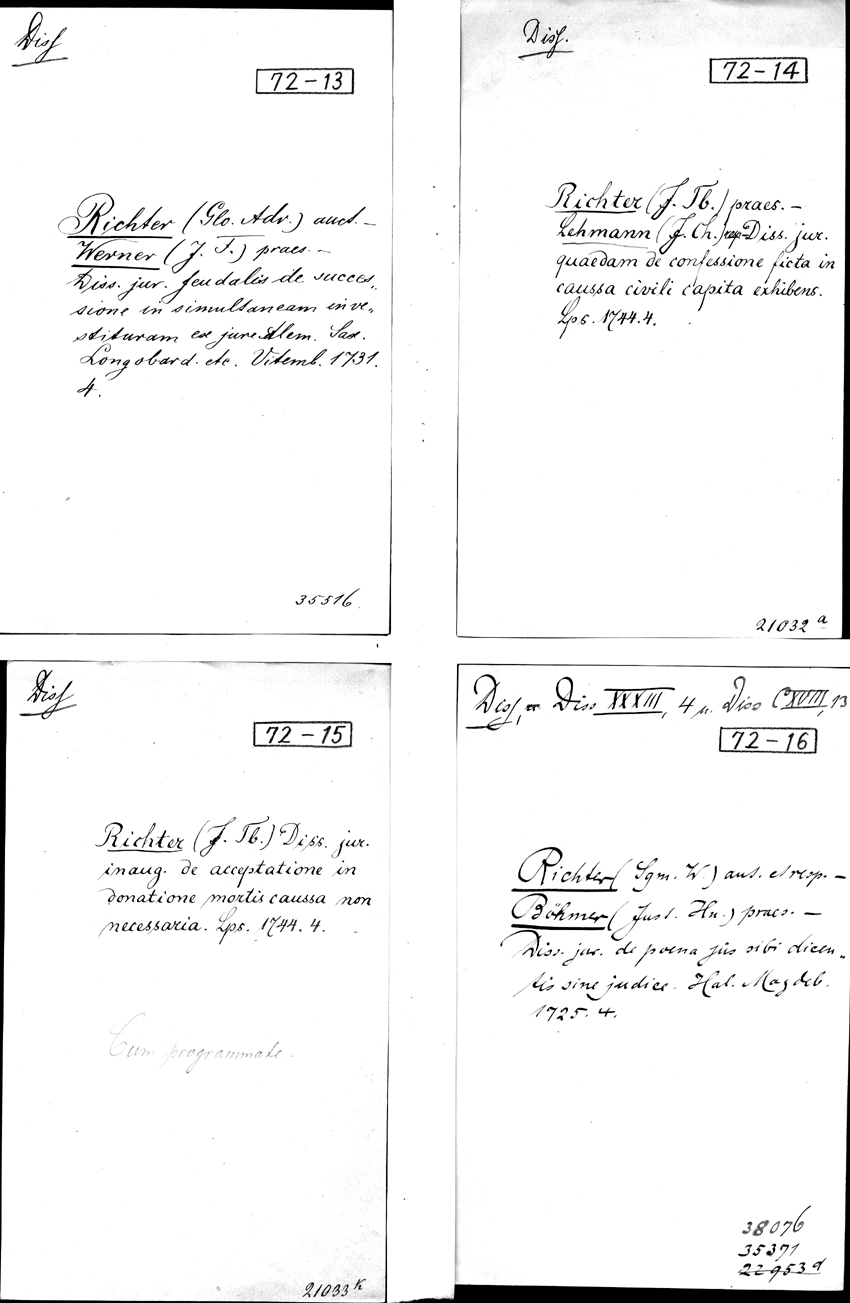 Diss
72-13
Richter (Glo. Adv.) auct. –
Werner (J. F.) praes. –
Diss. jur. feudalis de succes„
sione in simultaneam inve„
stituram ex jure Alem. Sax.
Longobard. etc. Vitemb. 1731.
4.
35516.
Diss.
72-14
Richter (J. Tb.) praes. –
Lehmann (J. Ch.) resp. Diss. jur.
quaedam de confessione ficta in
caussa civili capita exhibens.
Lps. 1744. 4.
21032 a
Diss
72-15
Richter (J. Tb.) Diss. jur.
inaug. de acceptatione in
donatione mortis caussa non
necessaria. Lps. 1744. 4.
Cum programmate.
21033 k
Diss, Diss XXXIII, 4 u. Diss CXVIII, 13
72-16
Richter (Sgm. W.) aut. et resp. –
Böhmer (Just. Hn.) praes. –
Diss. jur. de poena jus sibi dicen„
tis sine judice. Hal. Magdeb.
1725. 4.
38076
35371
22953 d